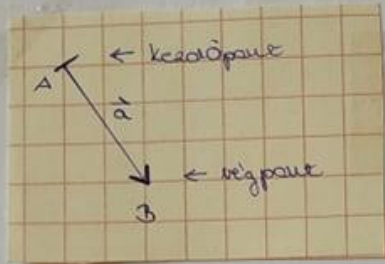 A ← kezdőpont
a⃗
← végpont
B